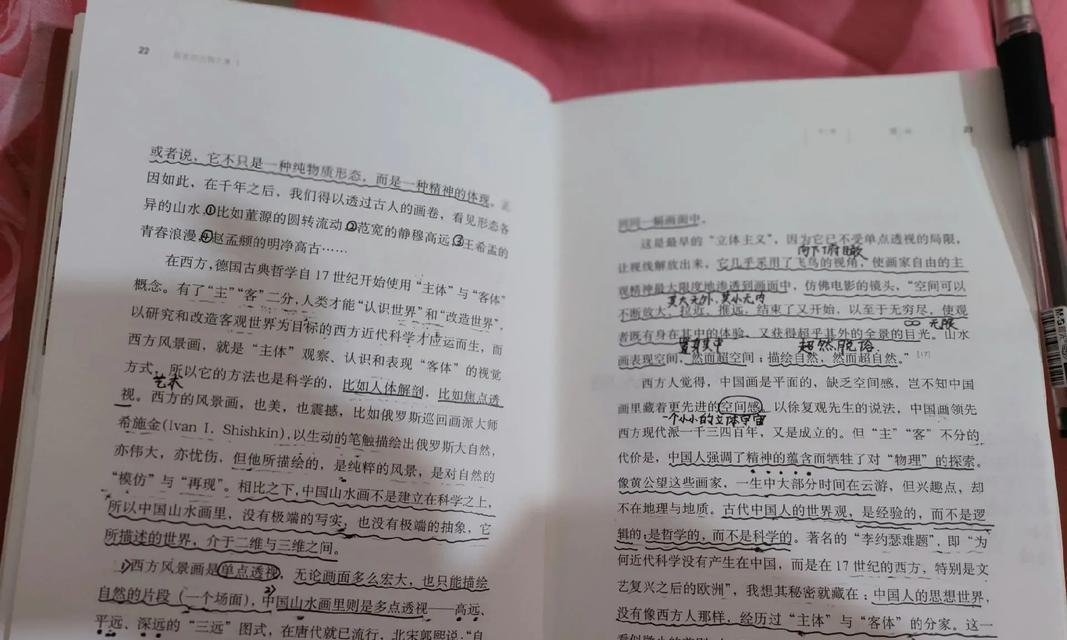 22
或者说，它不只是一种纯物质形态，而是一种精神的体现。正
因如此，在千年之后，我们得以透过古人的画卷，看见形态各
异的山水，①比如董源的圆转流动②范宽的静穆高远③王希孟的
青春浪漫④赵孟頫的明净高古……
在西方，德国古典哲学自17世纪开始使用“主体”与“客体”
概念。有了“主”“客”二分，人类才能“认识世界”和“改造世界”，
以研究和改造客观世界为目标的西方近代科学才应运而生，而
西方风景画，就是“主体”观察、认识和表现“客体”的视觉
方式，所以它的方法也是科学的，比如人体解剖，比如焦点透
艺术
视。西方的风景画，也美，也震撼，比如俄罗斯巡回画派大师
希施金(Ivan I. Shishkin)，以生动的笔触描绘出俄罗斯大自然，
亦伟大，亦忧伤，但他所描绘的，是纯粹的风景，是对自然的
“模仿”与“再现”。相比之下，中国山水画不是建立在科学之上，
所以中国山水画里，没有极端的写实，也没有极端的抽象，它
所描述的世界，介于二维与三维之间。
西方风景画是单点透视，无论画面多么宏大，也只能描绘
自然的片段（一个场面），中国山水画里则是多点透视——高远、
平远、深远的“三远”图式，在唐代就已流行，北宋郭熙说：“自
23
同一幅画面中。
这是最早的“立体主义”，因为它已不受单点透视的局限，
向下俯瞰
让视线解放出来，它几乎采用了飞鸟的视角，使画家自由的主
观精神最大限度地渗透到画面中，仿佛电影的镜头，“空间可以
其大无外，其小无内
不断放大、拉近、推远，结束了又开始，以至于无穷尽，使观
∞ 无限
者既有身在其中的体验，又获得超乎其外的全景的目光。山水
其中
超然脱俗
画表现空间，然而超空间；描绘自然，然而超自然。”[17]
西方人觉得，中国画是平面的，缺乏空间感，岂不知中国
画里藏着更先进的空间感，以徐复观先生的说法，中国画领先
一个小小的立体宇宙
西方现代派一千三四百年，又是成立的。但“主”“客”不分的
代价是，中国人强调了精神的蕴含而牺牲了对“物理”的探索。
像黄公望这些画家，一生中大部分时间在云游，但兴趣点，却
不在地理与地质。古代中国人的世界观，是经验的，而不是逻
辑的，是哲学的，而不是科学的。著名的“李约瑟难题”，即“为
何近代科学没有产生在中国，而是在17世纪的西方，特别是文
艺复兴之后的欧洲”，我想其秘密就藏在：中国人的思想世界，
没有像西方人那样，经历过“主体”与“客体”的分家。这一